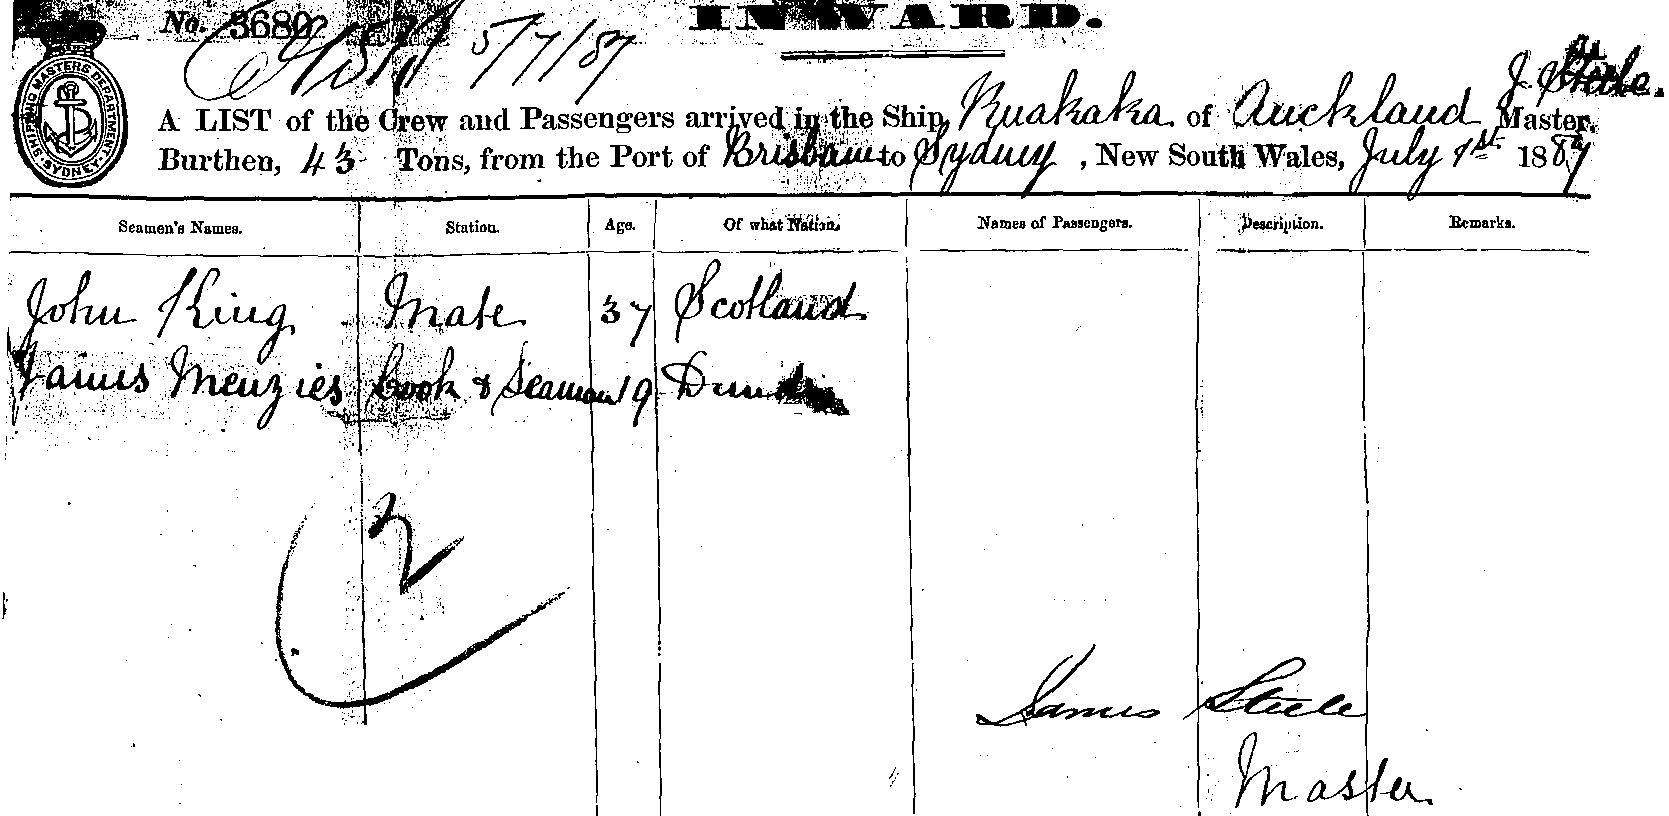 No. 36802
INWARD.
5/7/87
SHIPPING MASTERS DEPARTMENT, SYDNEY
J. Steele.
A LIST of the Crew and Passengers arrived in the Ship, Ruakaka of Auckland Master,
Burthen, 43 Tons, from the Port of Brisbane to Sydney, New South Wales, July 1st 1887
Seamen's Names. Station. Age. Of what Nation. Names of Passengers. Description. Remarks.
John King Mate 37 Scotland
James Menzies Cook & Seaman 19
2
James Steele
Master